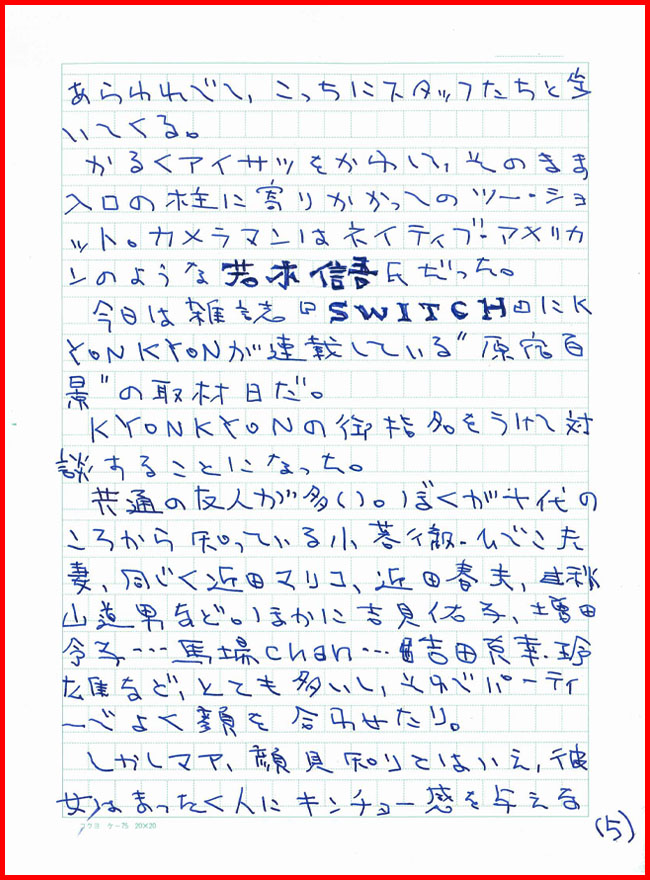 あらわれでて、こっちにスタッフたちと歩
いてくる。
かるくアイサツをかわして、そのまま
入口の柱に寄りかかってのツー・ショ
ット。カメラマンはネイティブ・アメリカ
ンのような若木信吾氏だった。
今日は雑誌『SWITCH』にK
YONKYONが連載している"原宿百
景"の取材日だ。
KYONKYONの御指名をうけて対
談することになった。
共通の友人が多い。ぼくが十代の
ころから知っている小暮徹・ムでこ夫
妻、同じく近田マリコ、近田春夫、秋
山道男など。ほかに吉見佑子、増田
令子…馬場chan…吉田
雄など、とても多いし、そのでパーティ
ーでよく顔を合わせたり。
しかしマア、顔見知りとはいえ、彼
女はまったく人にキンチョー感を与えな
(5)
コクヨ ケー75 20×20